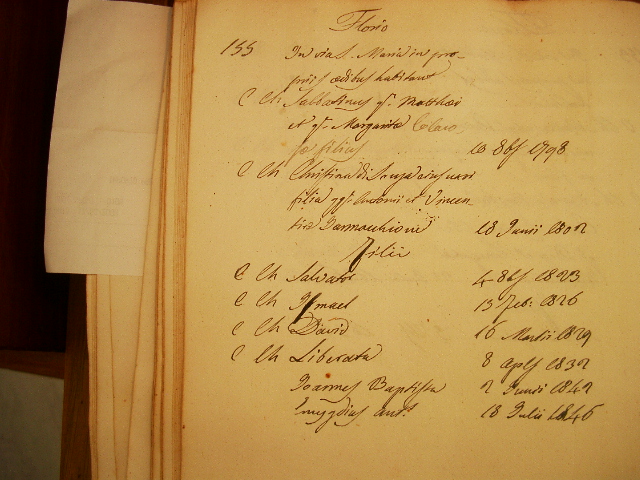 Florio
155 In via S. Maria in pro-
priis ædibus habitant
C Ch Sabbatinus qm. Matthæi
et qm. Margaritæ
filius 10 8bs 1798
C Ch Christina di Souza ejus uxor
filia qqm. Antonii et Vincen-
tiæ 18 Junii 1802
Filii
C Ch Salvator 4 8bs 1823
C Ch Ismael 13 Feb: 1826
C Ch David 16 Martii 1829
C Ch Liberata 8 Apls 1832
Joannes Baptista 2 Junii 1842
Emygdius Ant.s 18 Julii 1846